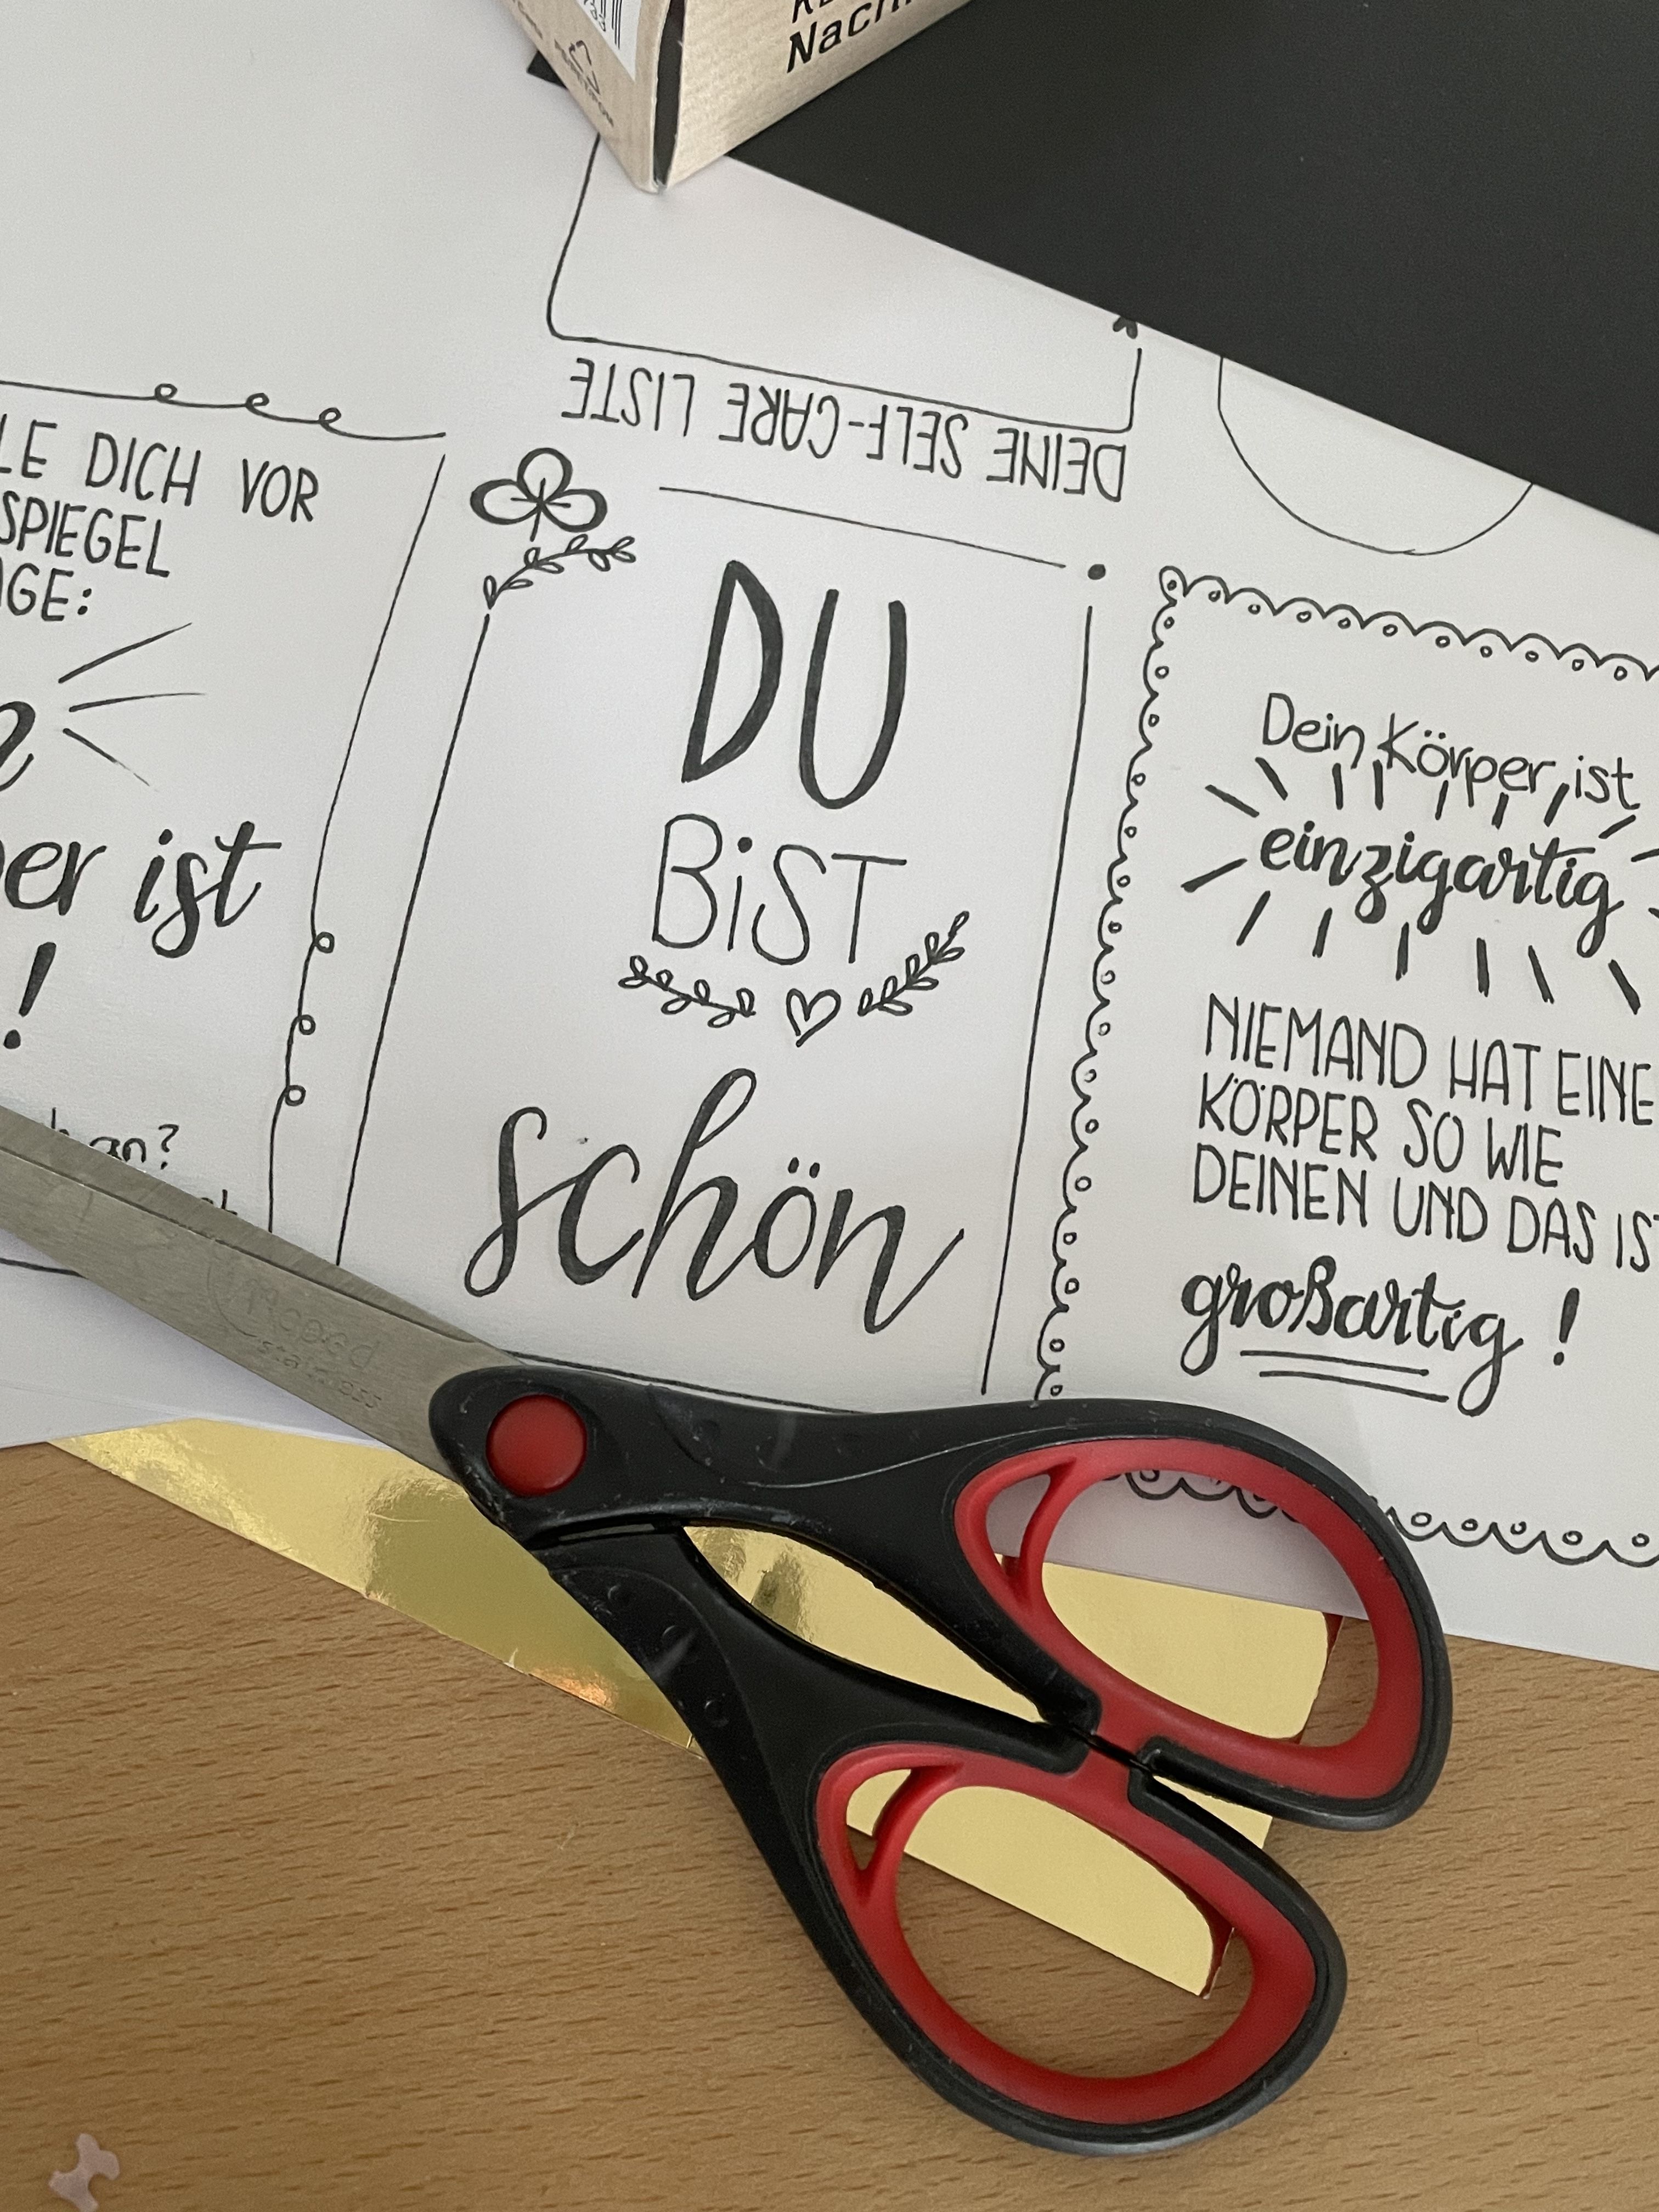 Nach
DEINE SELF-CARE LISTE
LE DICH VOR
SPIEGEL
AGE:
er ist
!
an?
DU
BiST
schön
Dein Körper ist
einzigartig
NIEMAND HAT EINE
KÖRPER SO WIE
DEINEN UND DAS IS
großartig !